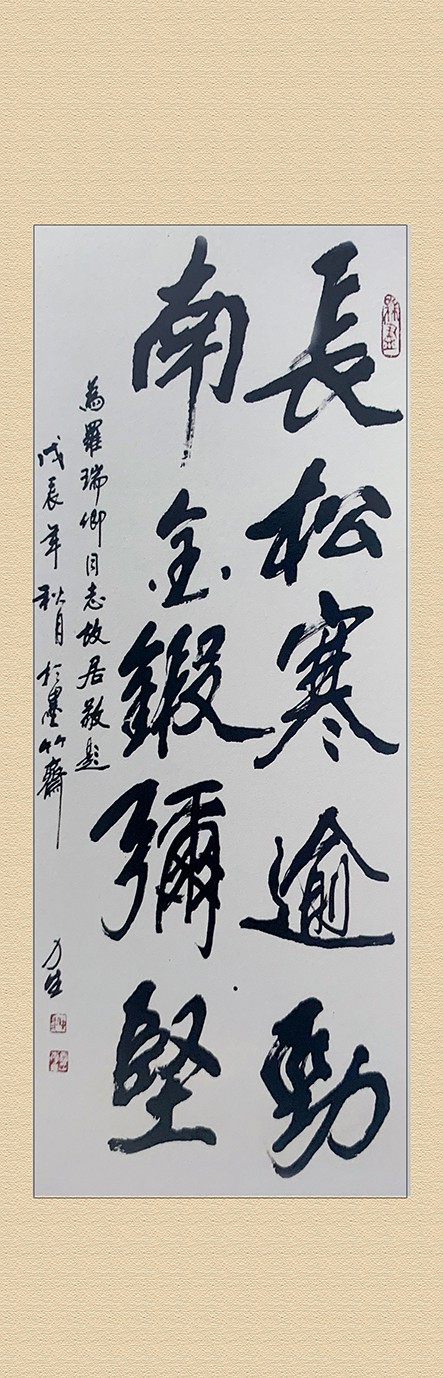 長松寒逾勁
南金鍛彌堅
為羅瑞卿同志故居敬題
戊辰年秋月於墨竹齋
力生